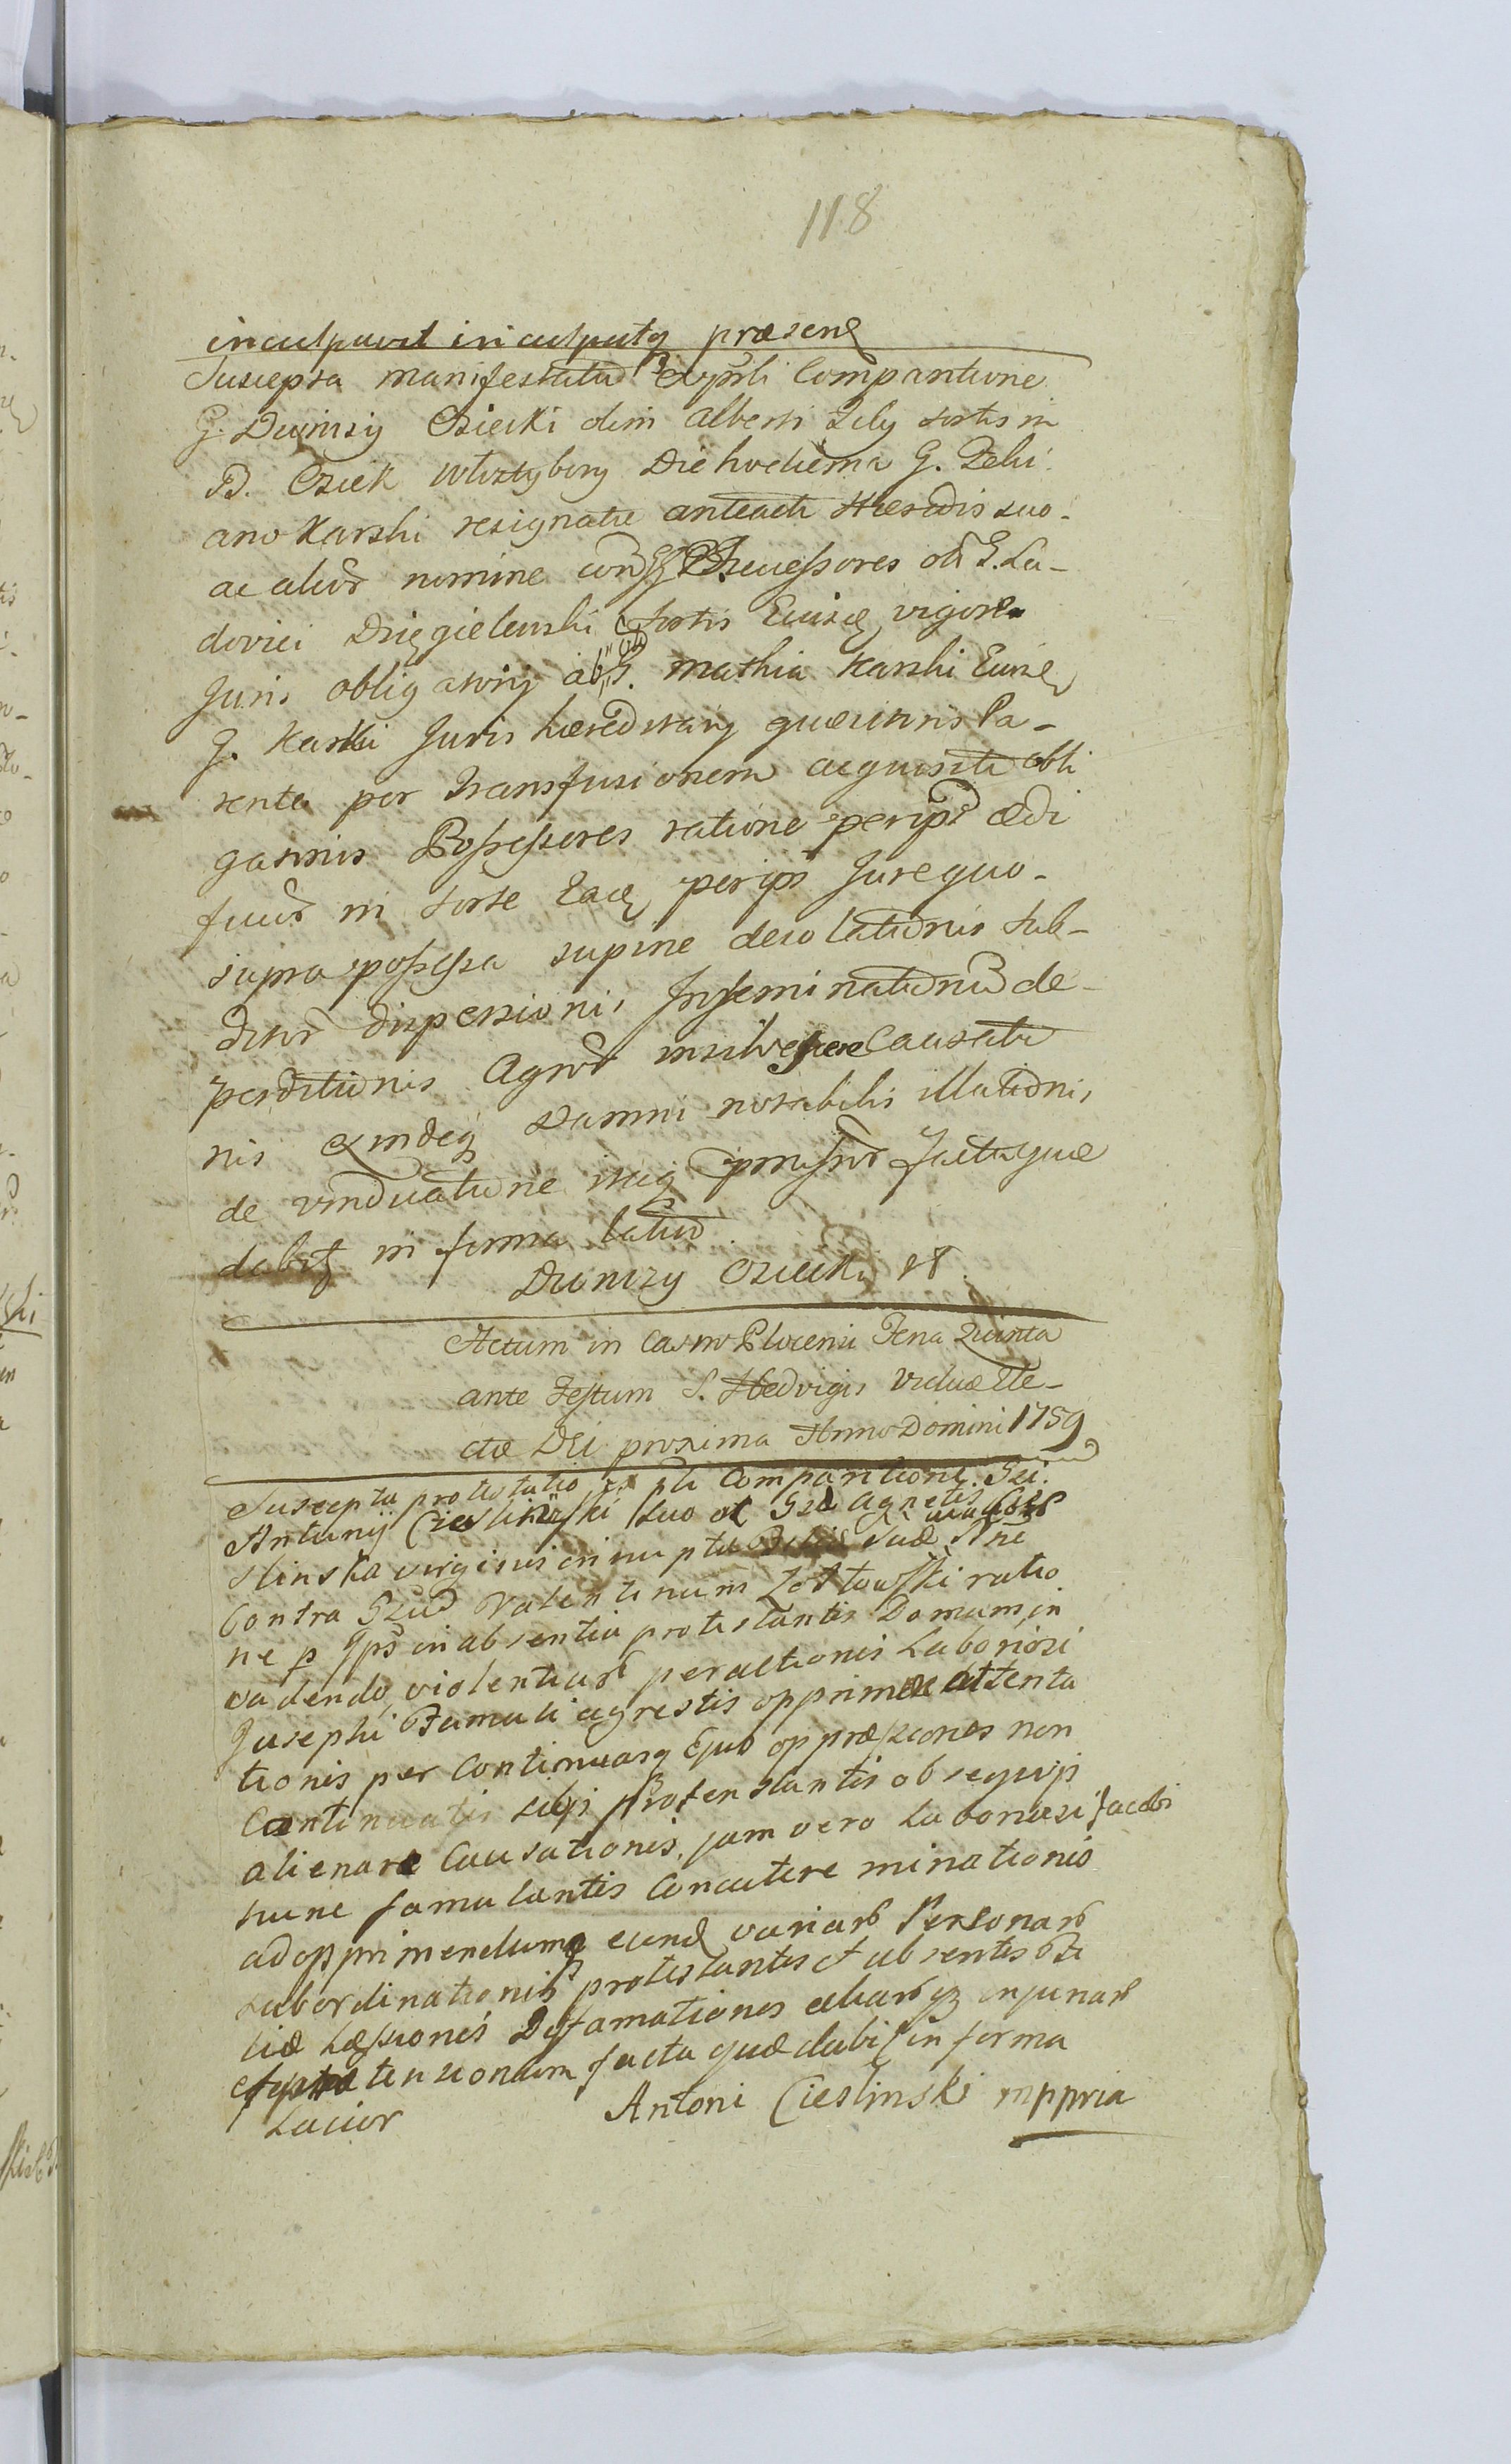 118
inculpavit inculpatq praesenq
Suscepta manifestatio ex pnli Comparitione
G. Dionizy Osiecki olim Alberti filij sortis in
B. Osiek Włostybory Die hodierna G. Felici
ano Karski resignatae anteacti Haeredis suo
ac alior nomine con GG Successores olim G. Lu-
dovici Dzięgielewski sortis Eiusd vigore
Juris obligatorij ab G. Mathia Karski Eiusd
G. Karski Juris haereditarij quaesitoris Pa-
rente per transfusionem acquisiti obli
gatorios Possessores ratione per ips aedi
ficior in sorte Eadq per ips Jure quo
supra possessa supine desolationis sub-
ditor dispersionis Inseminationum de-
perditionis Agror insilvescere Causatio
nis exindeq Damni notabilis illationis
de vindicatione itaq praemissor facta quae
dabitq in forma latior
Dionizy Osiecki
Actum in Castro Plocensi Feria Quinta
ante Festum S. Hedvigis Viduae Ele-
ctae Dei proxima Anno Domini 1759
Suscepta protestatio ex pli Comparitione Gsi.
Antonij Cieslinski suo et Gsd Agnetis Cie
slinska virginis innupta sud sue Nne
Contra Gsud Valentinum Zołtowski ratio
ne p Ips in absentia protestantis Domum in
vadendo violentiar peractionis Laboriosi
Josephi Famuli agrestis opprimere attenta
tionis per Continuasq Ejus oppraessiones non
Continuatis sibi Protestantis obsequijs
alienare Causationis, jam vero Laboriosi Jacobi
nunc famulantis Concutere minationis
ad opprimendumq eund variar Personar
subordinationis protestantis et absentis
Laesionis Defamationes aliarq injuriar
et praetensionum facta quae dabit in forma
Latior Antoni Cieslinski mppria